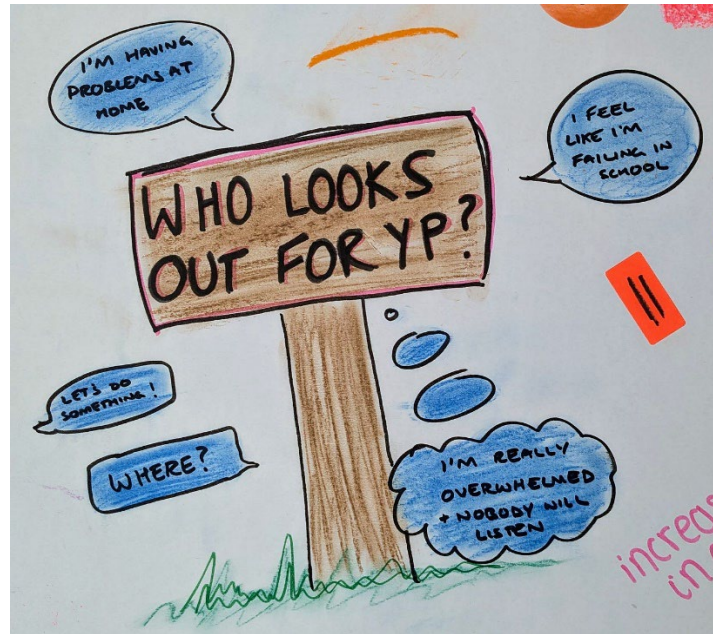 I'M HAVING
PROBLEMS AT
HOME
I FEEL
LIKE I'M
FAILING IN
SCHOOL
WHO LOOKS
OUT FOR YP?
LET'S DO
SOMETHING!
WHERE?
I'M REALLY
OVERWHELMED
+ NOBODY WILL
LISTEN